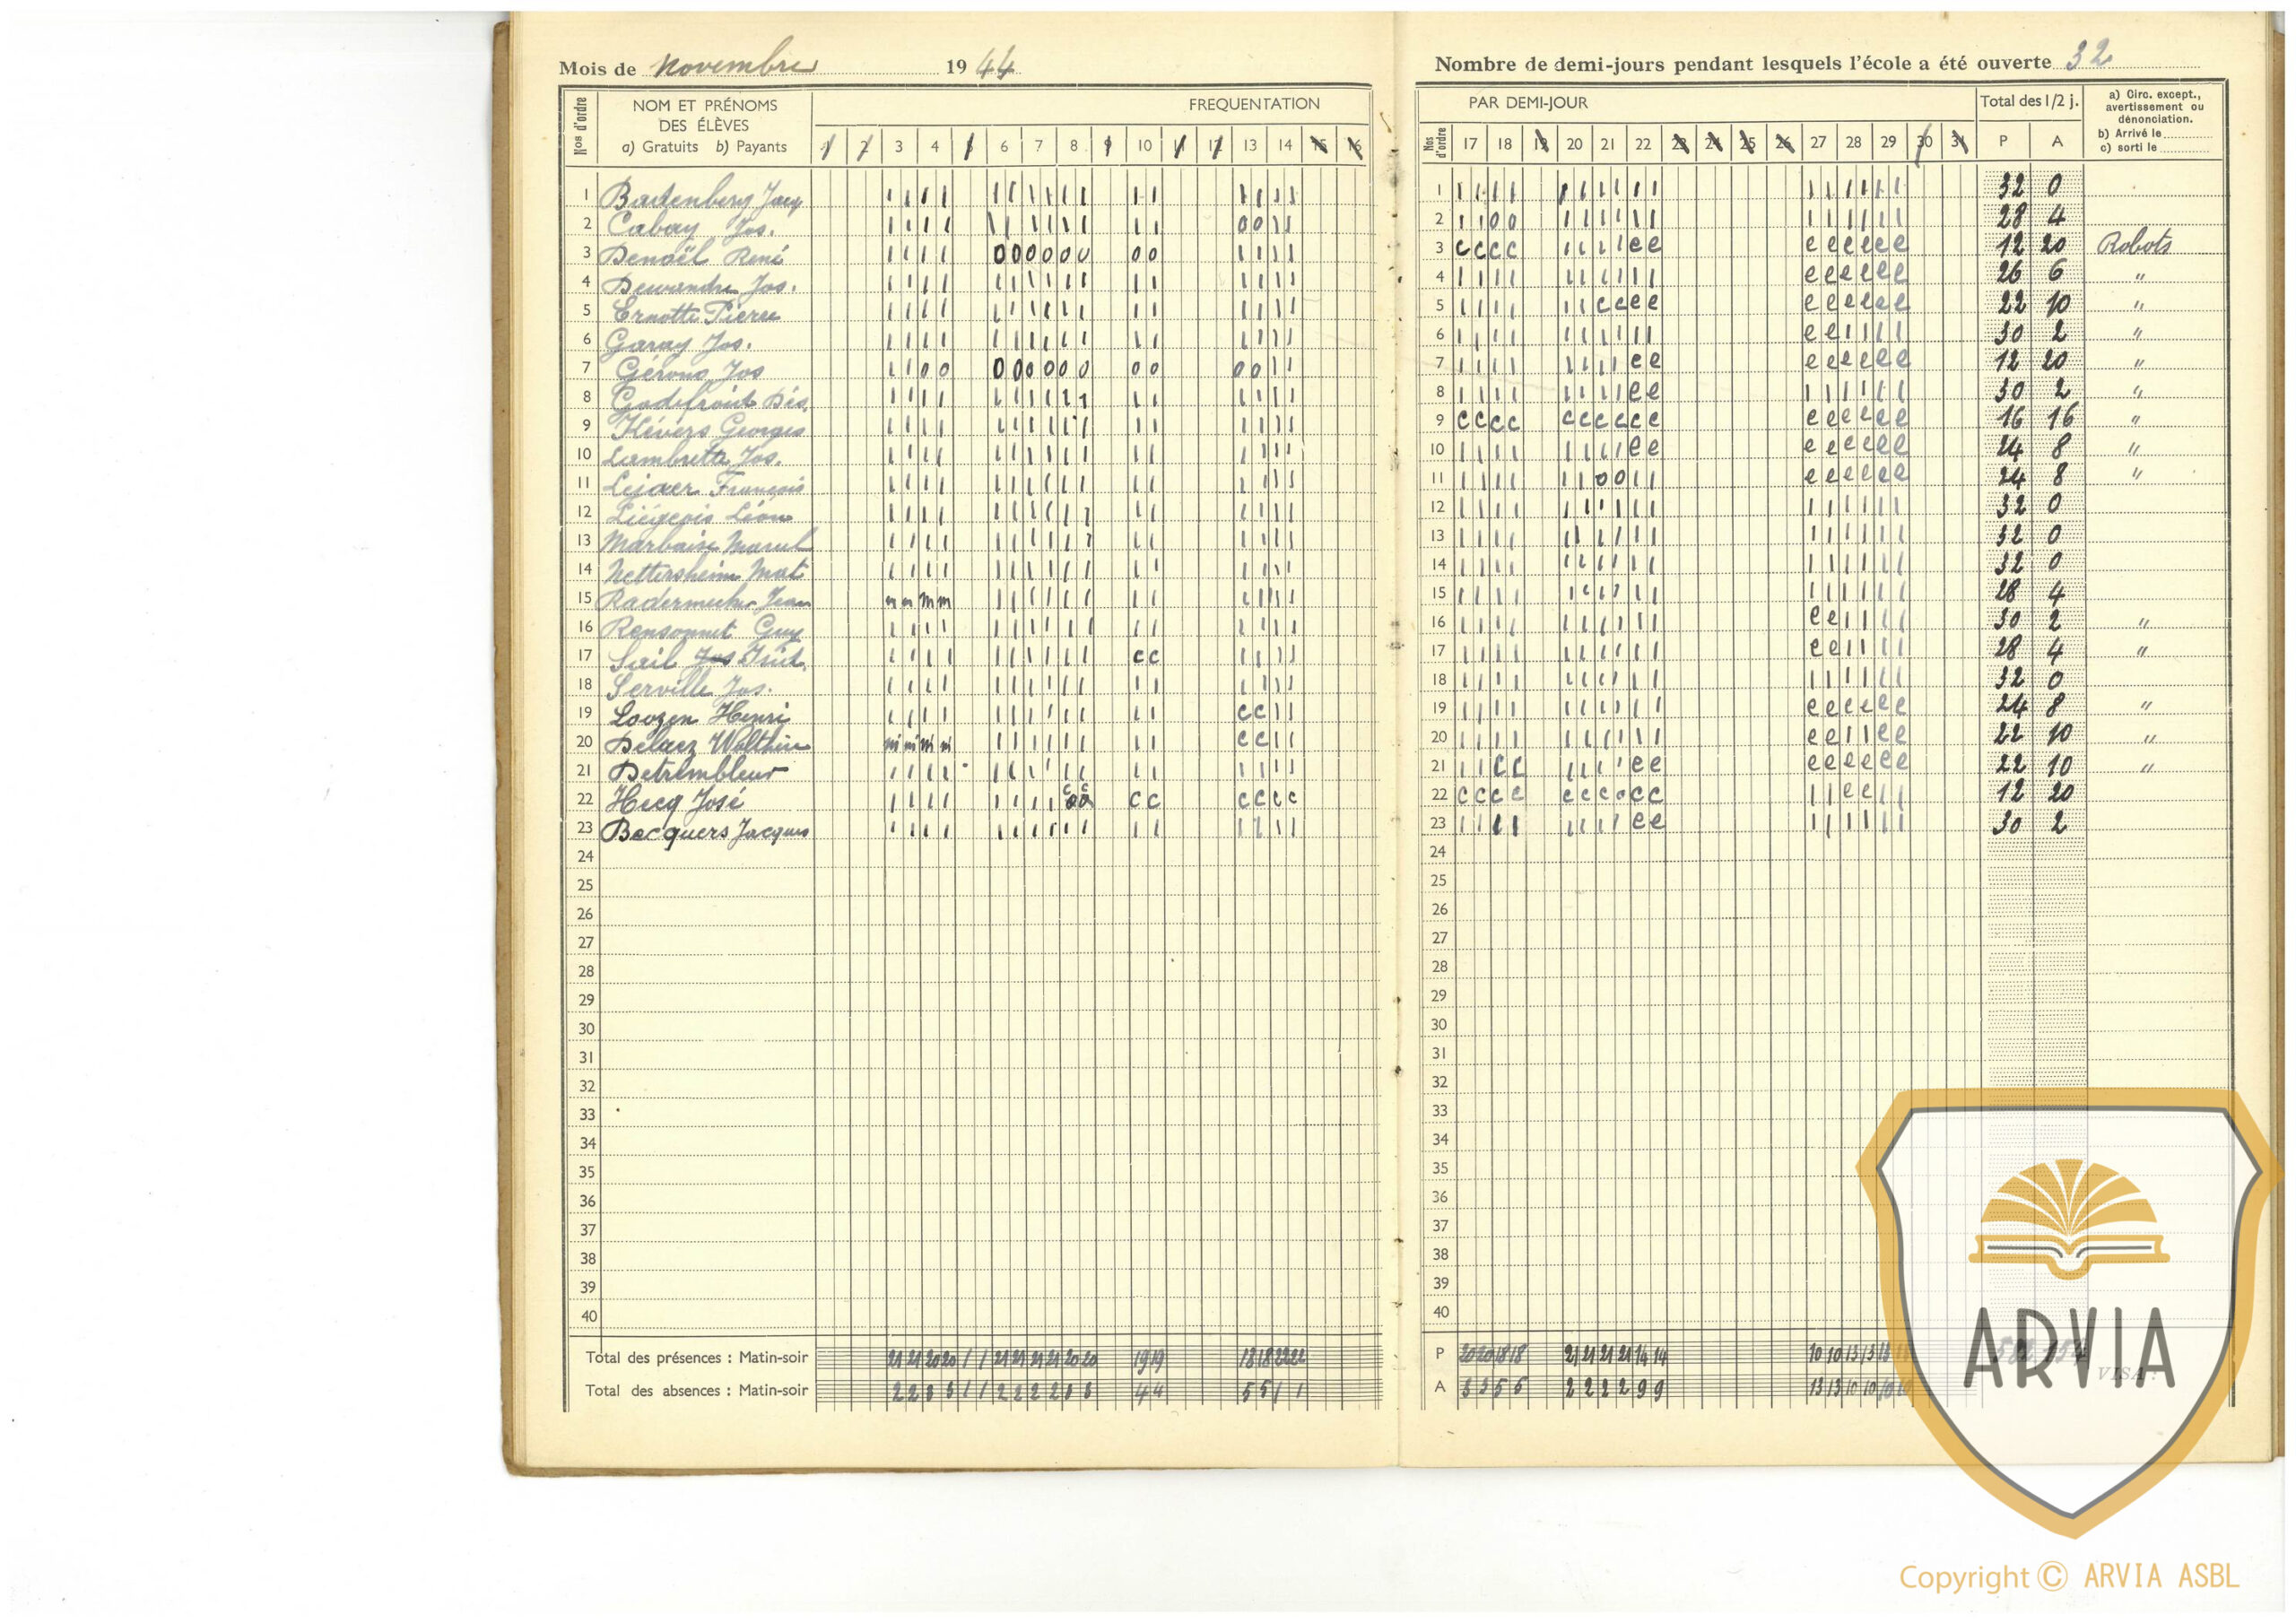 Mois de Novembre 1944
Nombre de demi-jours pendant lesquels l'école a été ouverte 32
Nos d'ordre
NOM ET PRÉNOMS
DES ÉLÈVES
a) Gratuits b) Payants
FREQUENTATION
1 2 3 4 5 6 7 8 9 10 11 12 13 14 15 16
PAR DEMI-JOUR
Nos d'ordre
17 18 19 20 21 22 23 24 25 26 27 28 29 30 31
Total des 1/2 j.
P A
a) Circ. except., avertissement ou dénonciation.
b) Arrivé le
c) sorti le
1 Jacq 1 32 0
2 Cabay Jos. 2 28 4
3 Denoël René 3 12 20 Robots
4 Dewandre Jos. 4 26 6 "
5 Ernotte Pierre 5 22 10 "
6 Garay Jos. 6 30 2 "
7 Gérono Jos 7 12 20 "
8 Godefroid Dés. 8 30 2 "
9 Kévers Georges 9 16 16 "
10 Lambrette Jos. 10 24 8 "
11 Lejaer François 11 24 8 "
12 Liégeois Léon 12 32 0
13 Marbaise Marcel 13 32 0
14 Nettersheim Mat 14 32 0
15 Radermecker Jean 15 28 4
16 Rensonnet Guy 16 30 2 "
17 Sail 17 28 4 "
18 Serville Jos. 18 32 0
19 Loozen Henri 19 24 8 "
20 Delaez 20 22 10 "
21 Detrembleur 21 22 10 "
22 Hecq José 22 12 20
23 Becquers Jacques 23 30 2
24 24
25 25
26 26
27 27
28 28
29 29
30 30
31 31
32 32
33 33
34 34
35 35
36 36
37 37
38 38
39 39
40 40
Total des présences : Matin-soir 21 21 20 20 21 21 21 21 20 20 19 19 18 18 22 22
P 20 20 18 18 21 21 21 21 14 14 10 10 13 13 13
Total des absences : Matin-soir 2 2 3 3 2 2 2 2 3 3 4 4 5 5 1 1
A 3 3 5 5 2 2 2 2 9 9 13 13 10 10 10 10
VISA :
ARVIA
Copyright © ARVIA ASBL